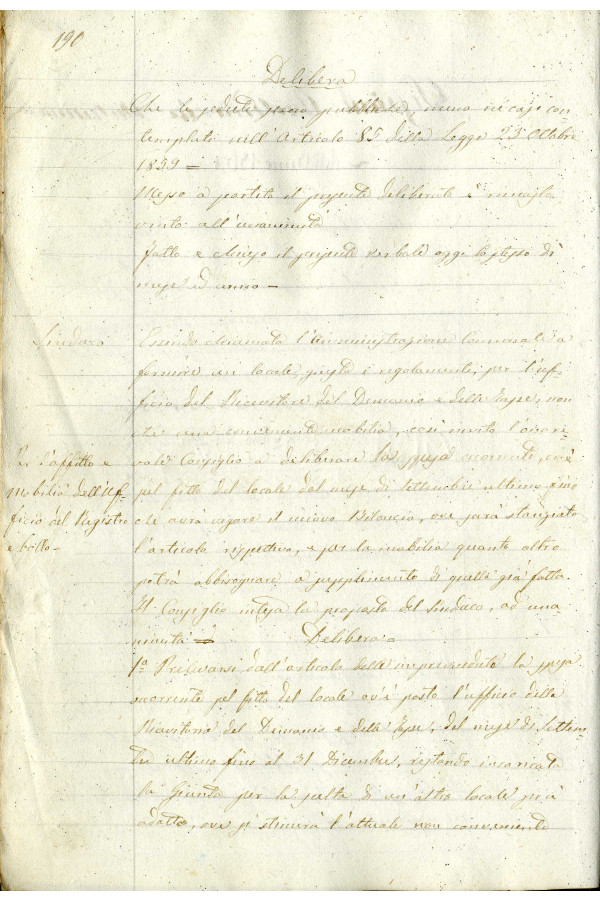 190
Delibera
Che le sedute siano pubbliche, meno ne' casi con-
templati nell'Articolo 85 della Legge 23 Ottobre
1859 =
Messo a partito il presente deliberato è riuscito
vinto all'unanimità
fatto e chiuso il presente verbale oggi lo stesso dì
mese ed anno =
Sindaco
Essendo chiamata l'Amministrazione Comunale a
fornire un locale, giusta i regolamenti, per l'uf-
ficio del Ricevitore del Demanio e delle Tasse, non
che una conveniente mobilia, così invito l'onore-
vole Consiglio a deliberare la spesa occorrente, cioè
pel fitto del locale dal mese di Settembre ultimo fino
che avrà vigore il nuovo Bilancio, ove sarà stanziato
l'articolo rispettivo, e per la mobilia quanto altro
potrà abbisognare a supplimento di quella già fatta.
Per l'affitto e
mobilia dell'Uf-
ficio del Registro
e bollo =
Il Consiglio intesa la proposta del Sindaco, ad una-
nimità = Delibera =
1º Prelevarsi dall'articolo delle imprevedute la spesa
occorrente pel fitto del locale ov'è posto l'ufficio della
Ricevitoria del Demanio e delle Tasse, dal mese di Settem-
bre ultimo fino al 31 Dicembre, restando incaricata
la Giunta per la scelta di un'altro locale più
adatto, ove si stimerà l'attuale non conveniente